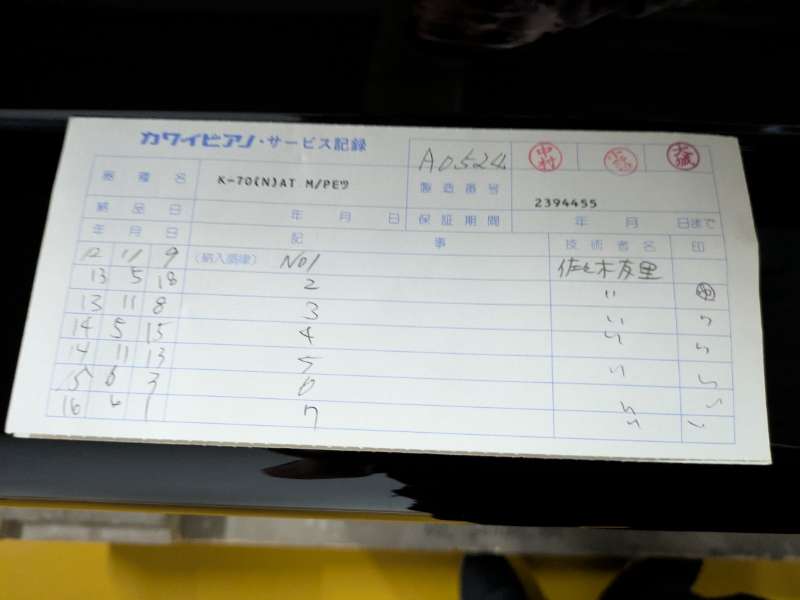 カワイピアノ・サービス記録
A0524
器種名 K-70(N)AT M/PEツ
製造番号 2394455
納品日 年 月 日 保証期間 年 月 日まで
年 月 日 記 事 技術者名 印
12 11 9 (納入調律) NO1 佐々木友里
13 5 18 2 〃
13 11 8 3 〃 〃
14 5 15 4 〃 〃
14 11 13 5 〃 〃
15 6 3 6 〃 〃
16 4 1 7 〃 〃